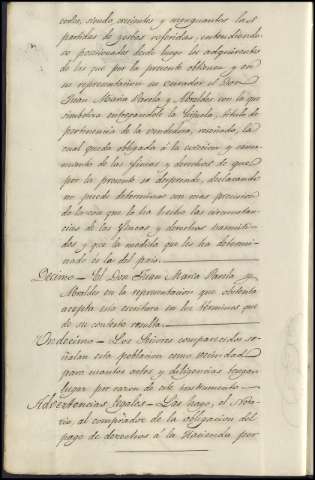 cedio, siendo, crecientes y menguantes las
partidas de gastos referidas, entendiendo
se posesionados desde luego los adquirentes
de los que por la presente obtienen y en
su representación su curador el Don
Juan María Varela y Abraldes con lo que
simboliza entregándole la hijuela, título de
pertinencia de la vendedora, reseñado, la
cual queda obligada á la evicción y sanea-
miento de las fincas y derechos de que
por la presente se desprende, declarando
no puede determinar con más precisión
de la con que lo ha hecho las circunstan-
cias de las fincas y derechos transmiti-
dos y que la medida que les ha determi-
nado es la del país.
Décimo – El Don Juan María Varela y
Abraldes en la representación que ostenta
acepta esta escritura en los términos que
de su contexto resulta.
Undécimo – Los Señores comparecidos se-
ñalan esta población como vecindad
para cuantos actos y diligencias tengan
lugar por razón de este instrumento.
Advertencias legales – Las hago, el Nota-
rio, al comprador de la obligación del
pago de derechos á la Hacienda por